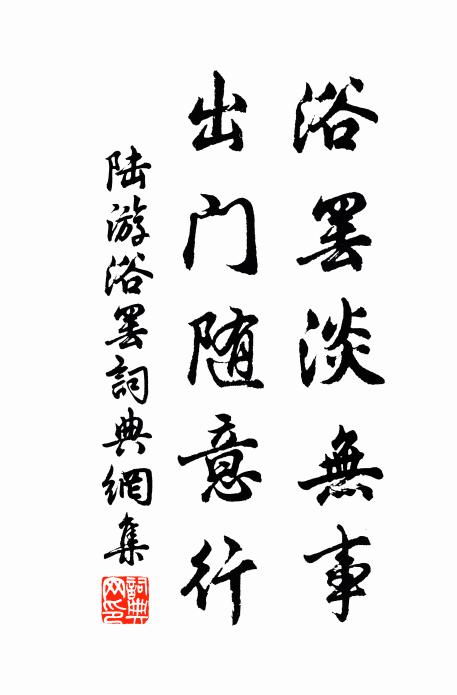 浴罢淡無事
出门随意行
陆游浴罢詞典網集
詞典網印